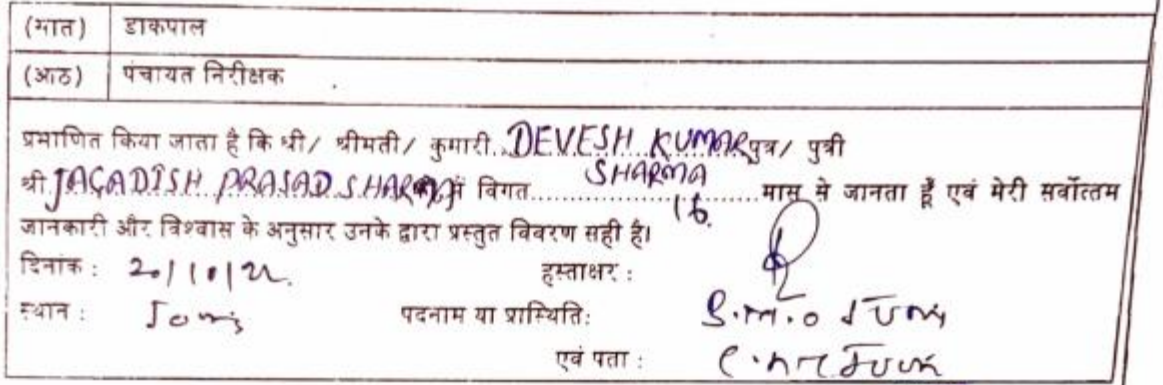 (सात) डाकपाल
(आठ) पंचायत निरीक्षक
प्रमाणित किया जाता है कि श्री/ श्रीमती/ कुमारी..DEVESH KUMAR पुत्र/ पुत्री
SHARMA
श्री JAGADISH PRASAD SHARMA में विगत.....................मास से जानता हूँ एवं मेरी सर्वोत्तम
16.
जानकारी और विश्वास के अनुसार उनके द्वारा प्रस्तुत विवरण सही है।
दिनांक : 20/10/22. हस्ताक्षर :
स्थान : पदनाम या प्रास्थिति: S.M.O
एवं पता :